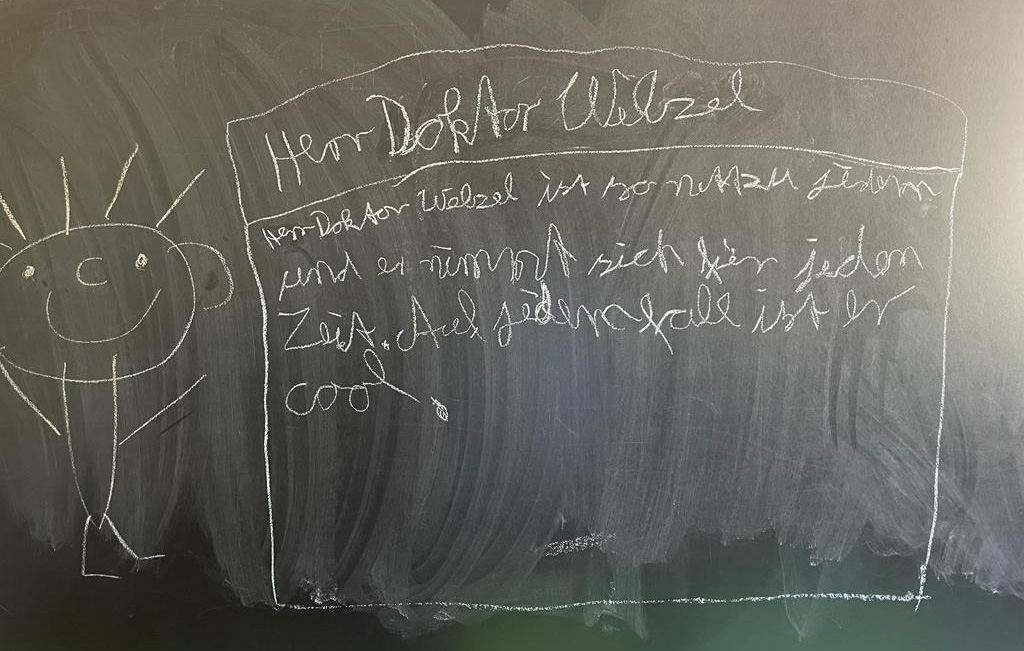 Herr Doktor Welzel
Herr Doktor Welzel ist so nett zu jedem
und er nimmt sich für jeden
Zeit. Auf jedenfall ist er
cool.